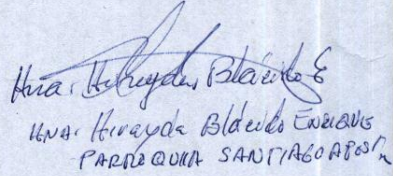 Hna. Hirayda Blácido E
HNA. Hirayda Blácido ENRIQUE
PARROQUIA SANTIAGO APOSTOL